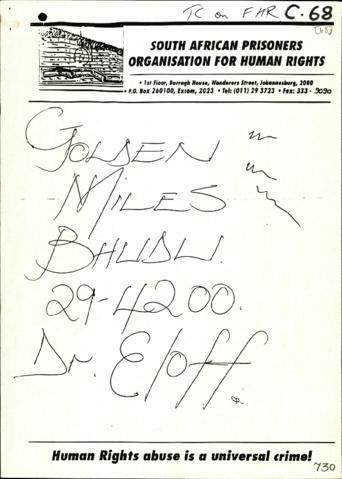 TC on FHR C.68
SOUTH AFRICAN PRISONERS
ORGANISATION FOR HUMAN RIGHTS
• 1st Floor, Barragh House, Wanderers Street, Johannesburg, 2000
• P.O. Box 260100, Excom, 2023 • Tel: (011) 29 3723 • Fax: 333 - 9090
GOLDEN
MILES
BHUDU.
29-4200.
Dr. Eloff.
Human Rights abuse is a universal crime!
730